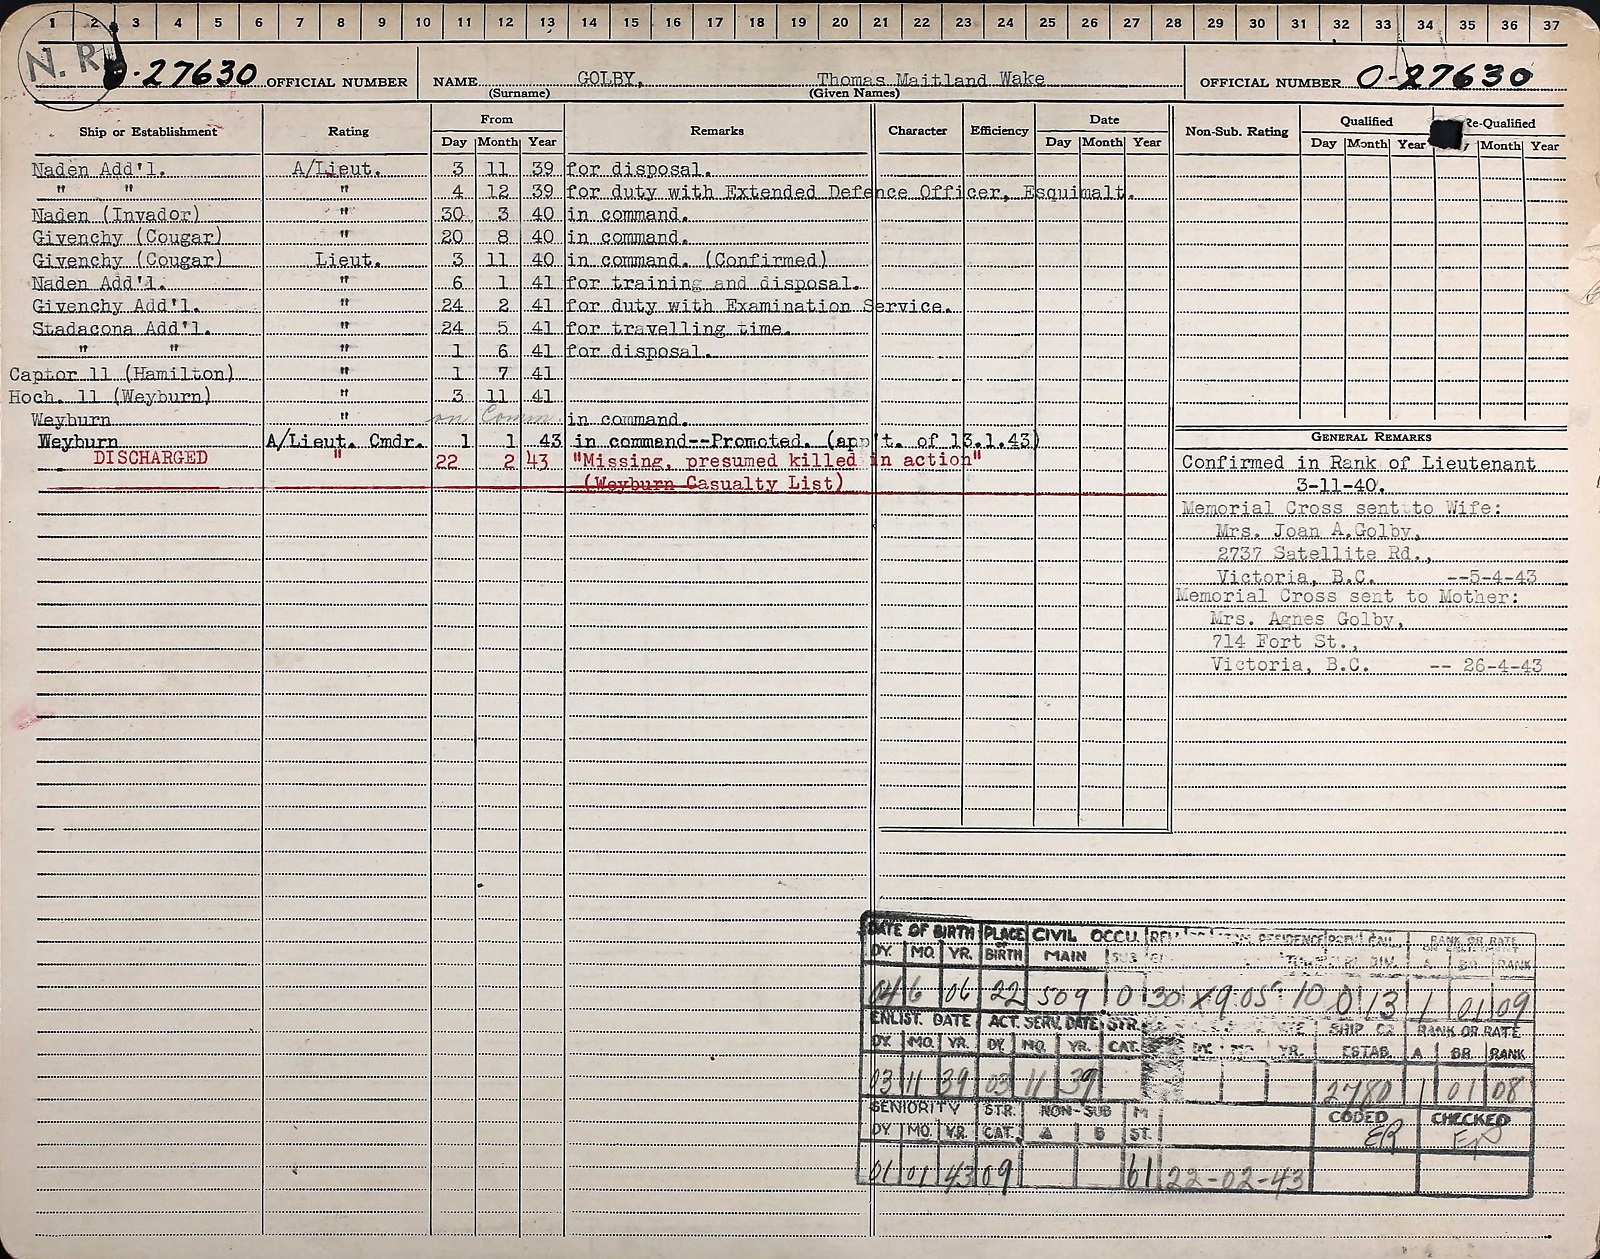 1 2 3 4 5 6 7 8 9 10 11 12 13 14 15 16 17 18 19 20 21 22 23 24 25 26 27 28 29 30 31 32 33 34 35 36 37
N. R.
O-27630 OFFICIAL NUMBER NAME GOLBY, Thomas Maitland Wake OFFICIAL NUMBER O-27630
(Surname) (Given Names)
Ship or Establishment Rating From Remarks Character Efficiency Date Non-Sub. Rating Qualified Re-Qualified
Day Month Year Day Month Year Day Month Year Month Year
Naden Add'l. A/Lieut. 3 11 39 for disposal.
" " " 4 12 39 for duty with Extended Defence Officer, Esquimalt.
Naden (Invador) " 30 3 40 in command.
Givenchy (Cougar) " 20 8 40 in command.
Givenchy (Cougar) Lieut. 3 11 40 in command. (Confirmed)
Naden Add'l. " 6 1 41 for training and disposal.
Givenchy Add'l. " 24 2 41 for duty with Examination Service.
Stadacona Add'l. " 24 5 41 for travelling time.
" " " 1 6 41 for disposal.
Captor 11 (Hamilton) " 1 7 41
Hoch. 11 (Weyburn) " 3 11 41
Weyburn " on Comm in command.
Weyburn A/Lieut. Cmdr. 1 1 43 in command--Promoted. (app't. of 13.1.43)
DISCHARGED " 22 2 43 "Missing, presumed killed in action"
(Weyburn Casualty List)
GENERAL REMARKS
Confirmed in Rank of Lieutenant
3-11-40.
Memorial Cross sent to Wife:
Mrs. Joan A.Golby,
2737 Satellite Rd.,
Victoria, B.C. --5-4-43
Memorial Cross sent to Mother:
Mrs. Agnes Golby,
714 Fort St.,
Victoria, B.C. -- 26-4-43
DATE OF BIRTH PLACE OF BIRTH CIVIL OCCU. RESIDENCE RANK OR RATE
DY. MO. YR. MAIN SUB A BR. RANK
04 6 06 22 509 0 30 X9 05 10 0 13 1 01 09
ENLIST. DATE ACT. SERV. DATE STR. SHIP OR RANK OR RATE
DY. MO. YR. DY. MO. YR. CAT. DY. MO. YR. ESTAB. A BR. RANK
03 11 39 03 11 39 2780 1 01 08
SENIORITY STR. NON-SUB M CODED CHECKED
DY. MO. YR. CAT. A B ST. ER
01 01 43 09 61 22-02-43